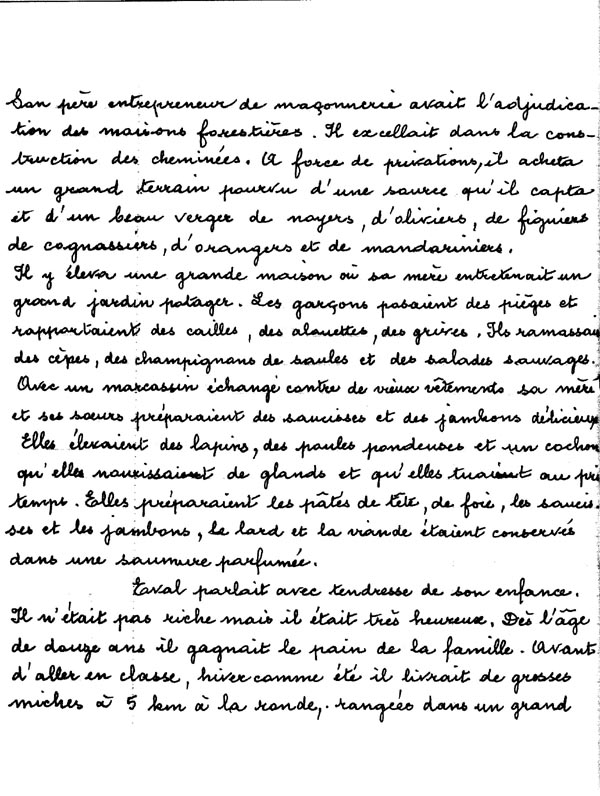 Son père entrepreneur de maçonnerie avait l'adjudica-
tion des maisons forestières. Il excellait dans la cons-
truction des cheminées. A force de privations, il acheta
un grand terrain pourvu d'une source qu'il capta
et d'un beau verger de noyers, d'oliviers, de figuiers
de cognassiers, d'orangers et de mandariniers.
Il y éleva une grande maison où sa mère entretenait un
grand jardin potager. Les garçons posaient des pièges et
rapportaient des cailles, des alouettes, des grives. Ils ramassai
des cèpes, des champignons de saules et des salades sauvages.
Avec un marcassin échangé contre de vieux vêtements sa mère
et ses sœurs préparaient des saucisses et des jambons délicieux
Elles élevaient des lapins, des poules pondeuses et un cochon
qu'elles nourrissaient de glands et qu'elles tuaient au pri
temps. Elles préparaient les pâtés de tête, de foie, les saucis
ses et les jambons, le lard et la viande étaient conservés
dans une saumure parfumée.
Laval parlait avec tendresse de son enfance.
Il n'était pas riche mais il était très heureux. Dès l'âge
de douze ans il gagnait le pain de la famille. Avant
d'aller en classe, hiver comme été il livrait de grosses
miches à 5 km à la ronde, rangées dans un grand